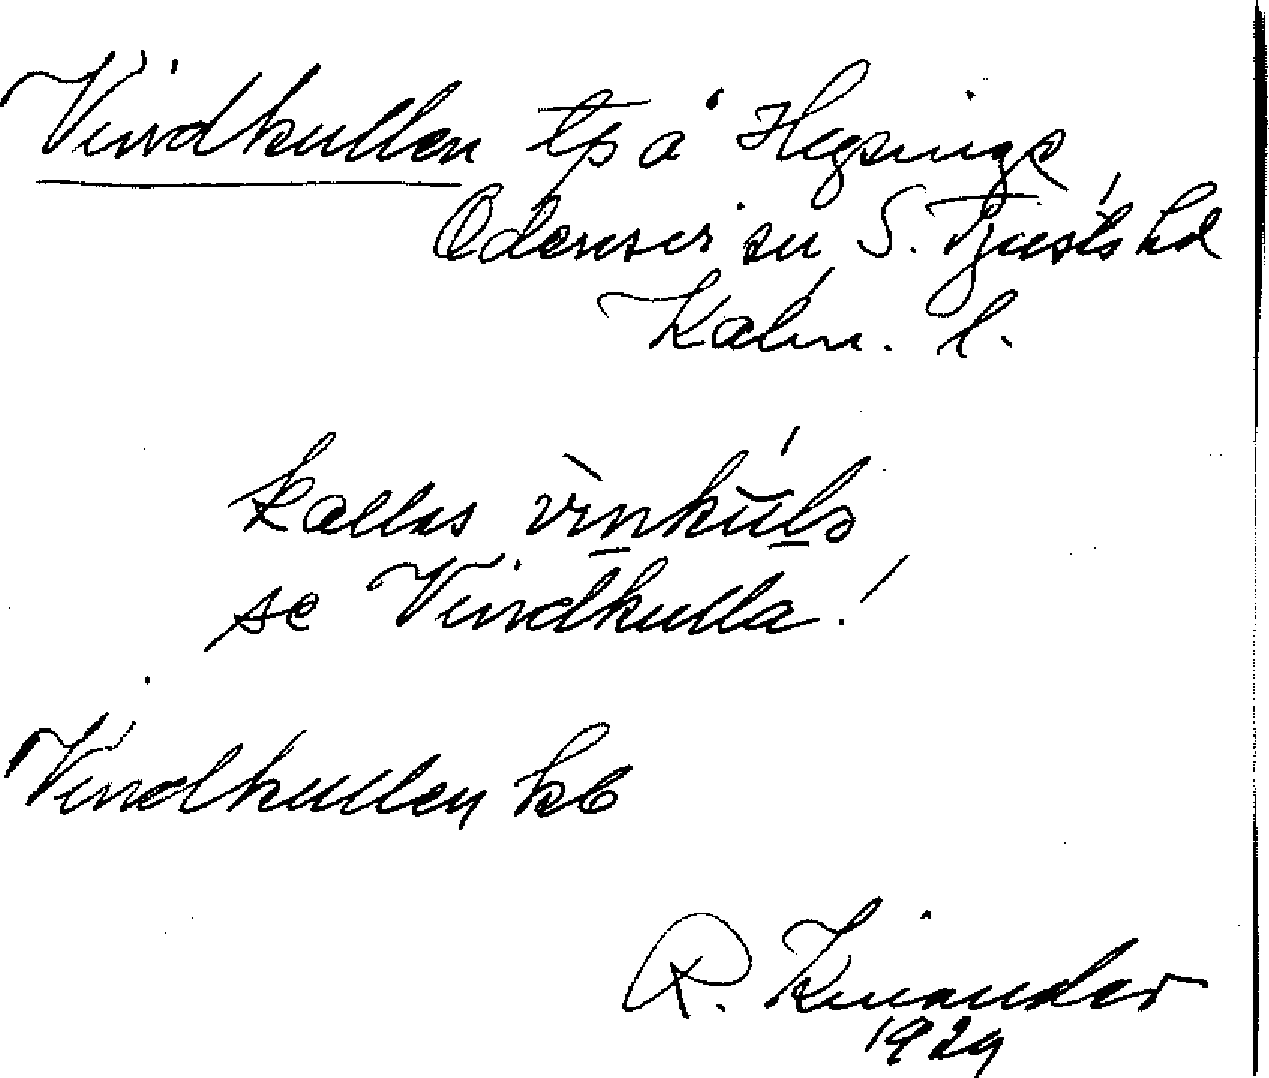 Vindkullen tp å Hegsinge
Odensvi sn S. Tjusts hd
Kalm. l.
kallas vìnkúla
se Vindkulla!
Vindkullen kb
R. Kinander
1929